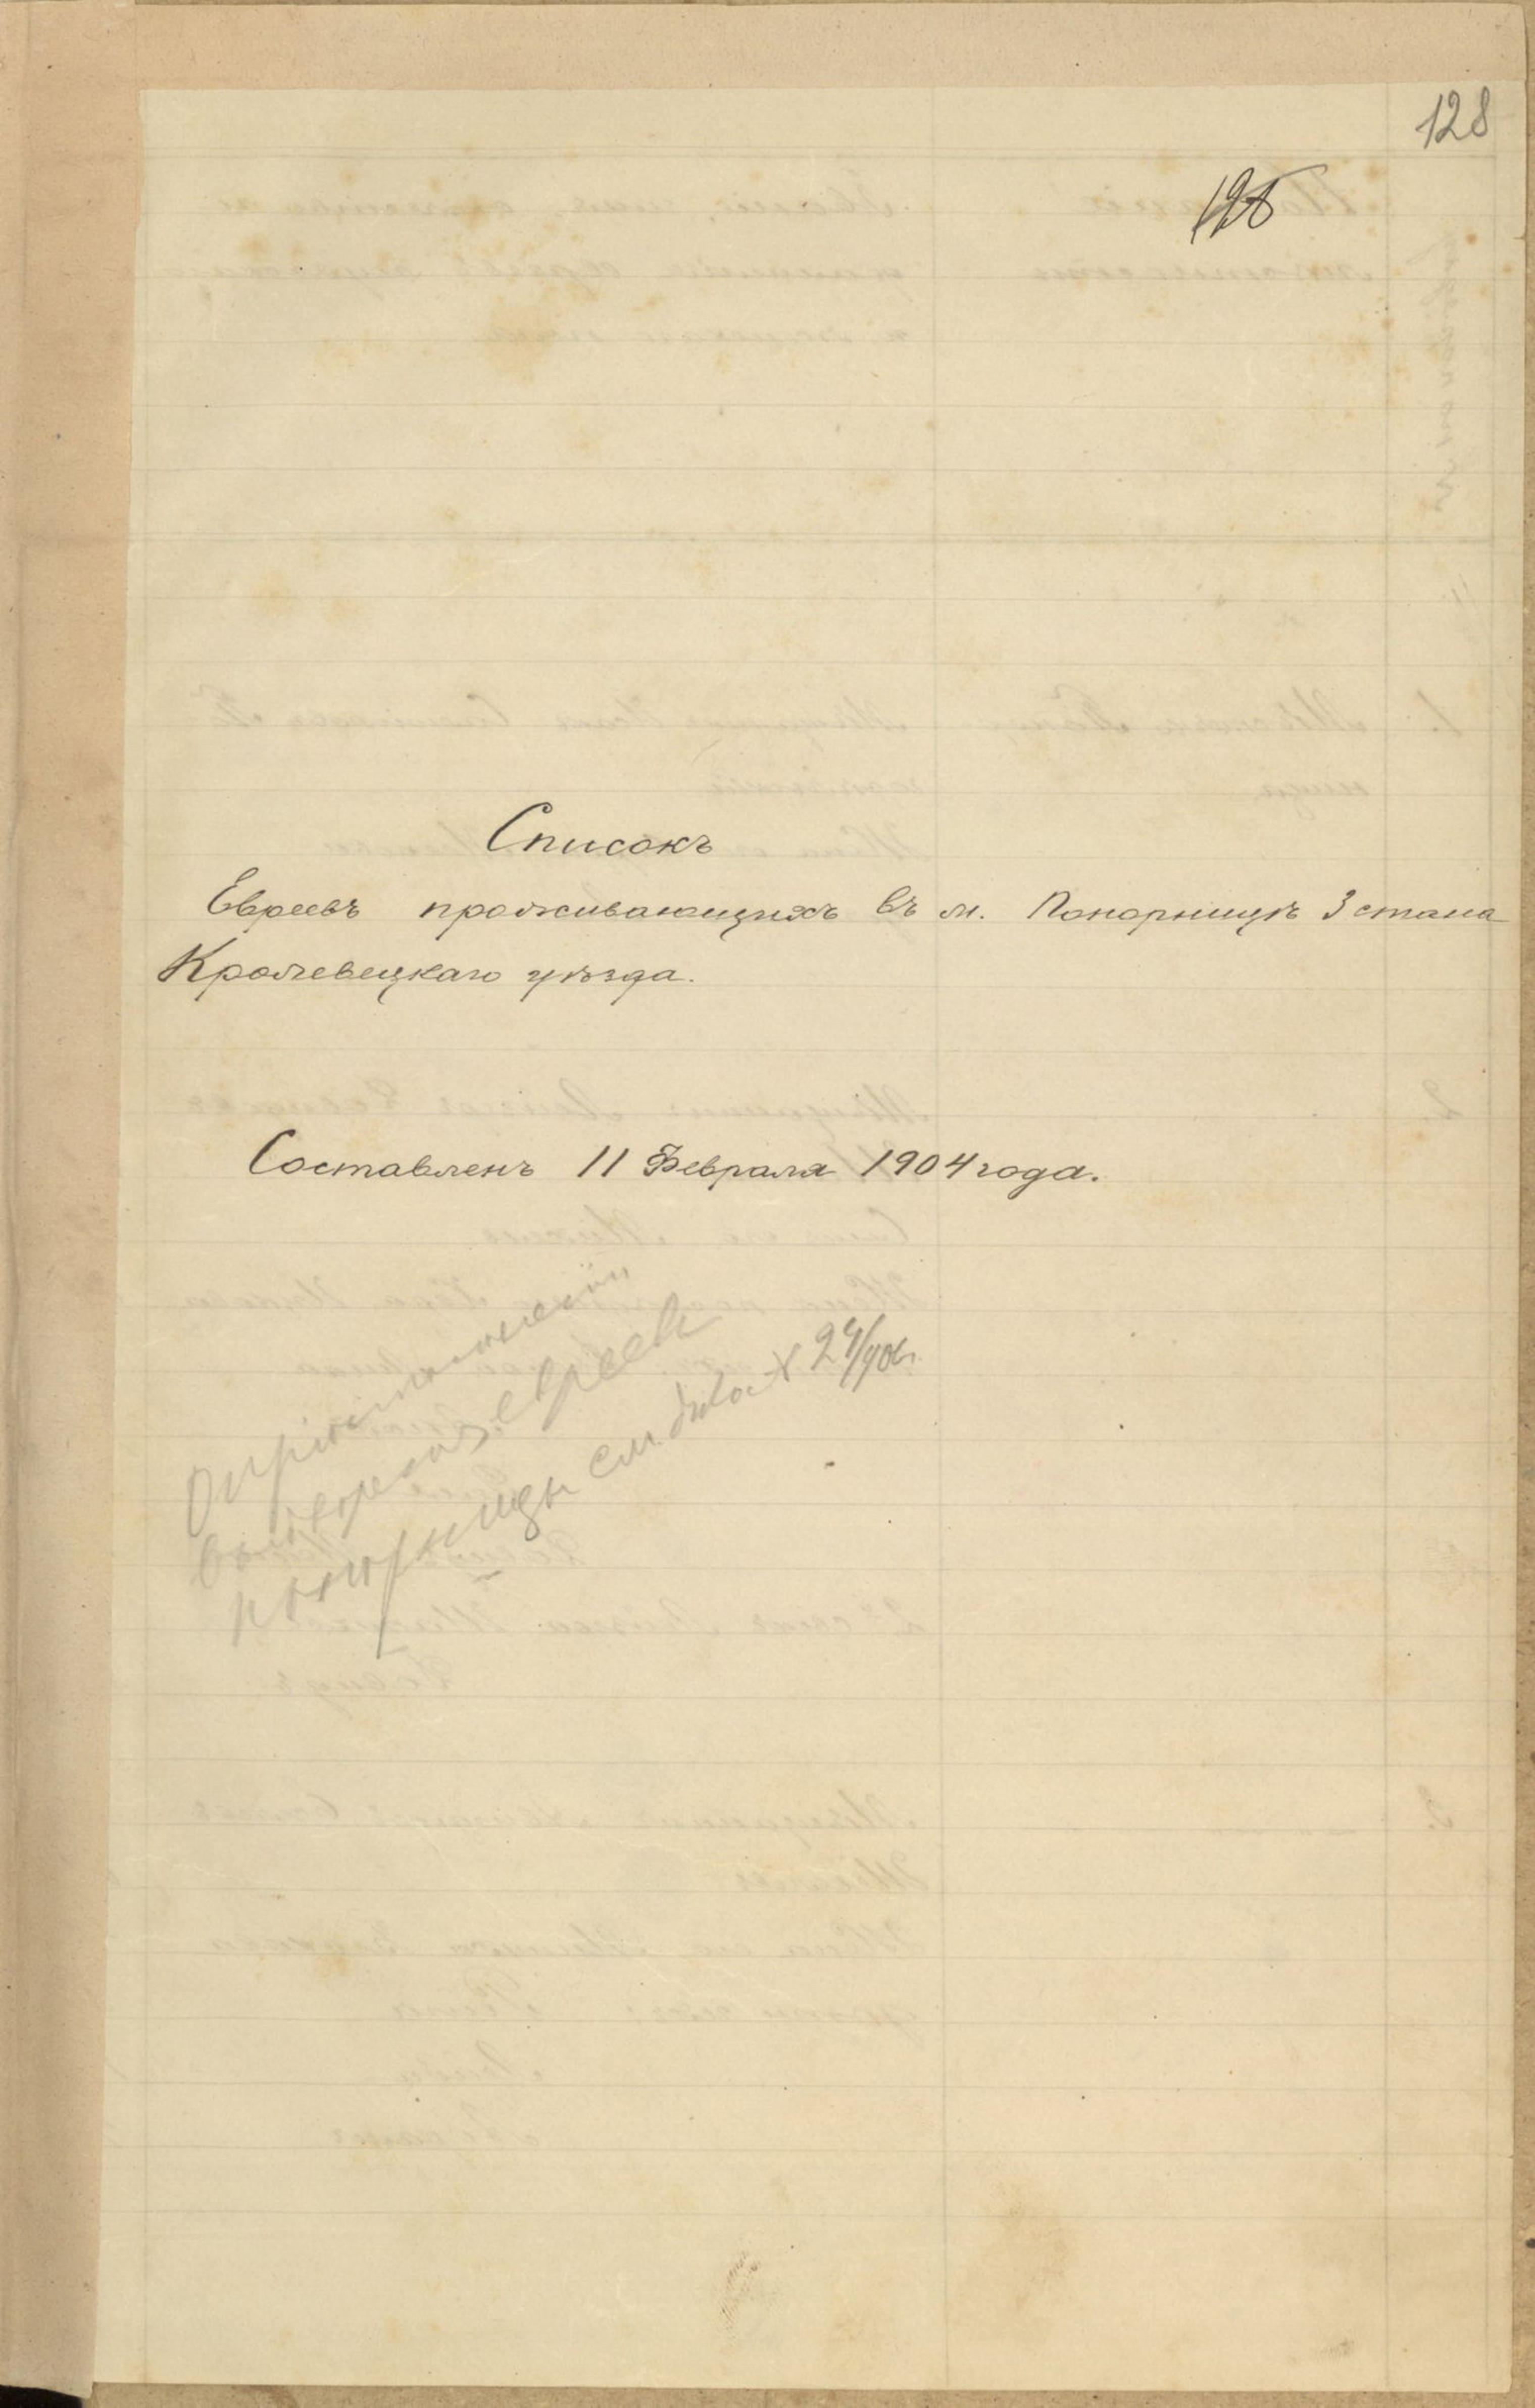 128
Списокъ
Евреевъ проживающихъ въ м. Понорницѣ 3 стана
Кролевецкаго уѣзда.
Составленъ 11 Февраля 1904 года.
евреевъ
понорницы см. дѣло № 24/904г.